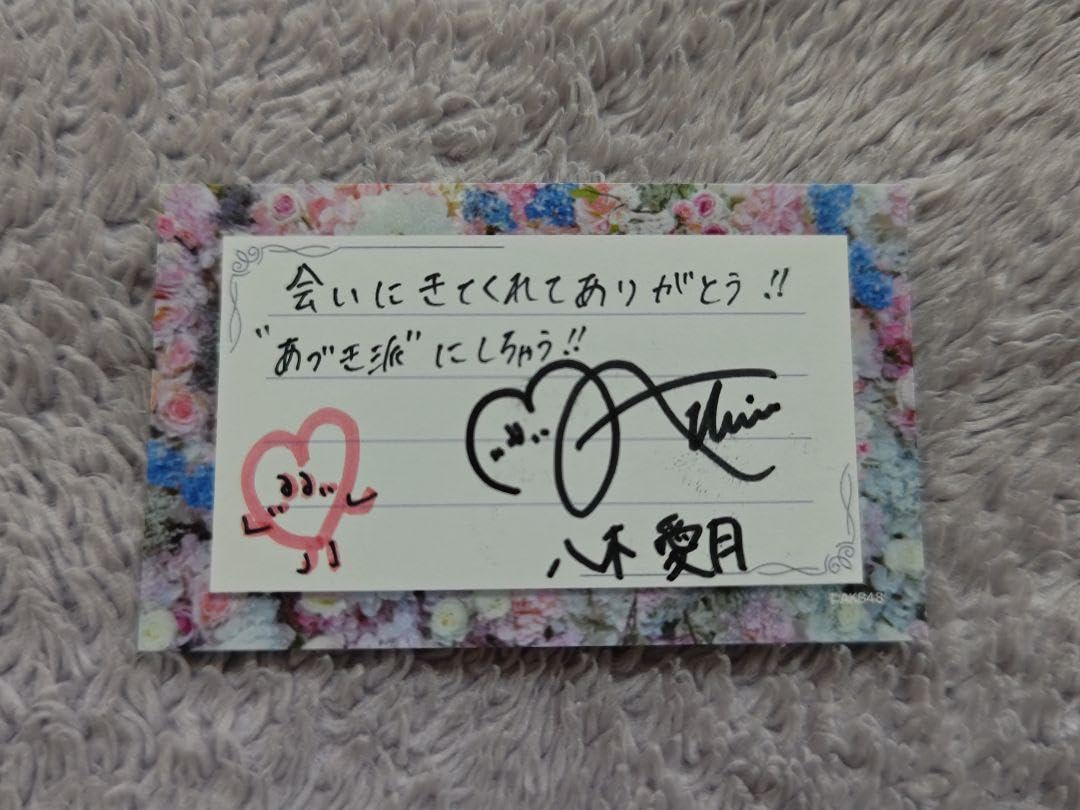 会いにきてくれてありがとう!!
"あづき派"にしちゃう!!
八木 愛月
©AKB48